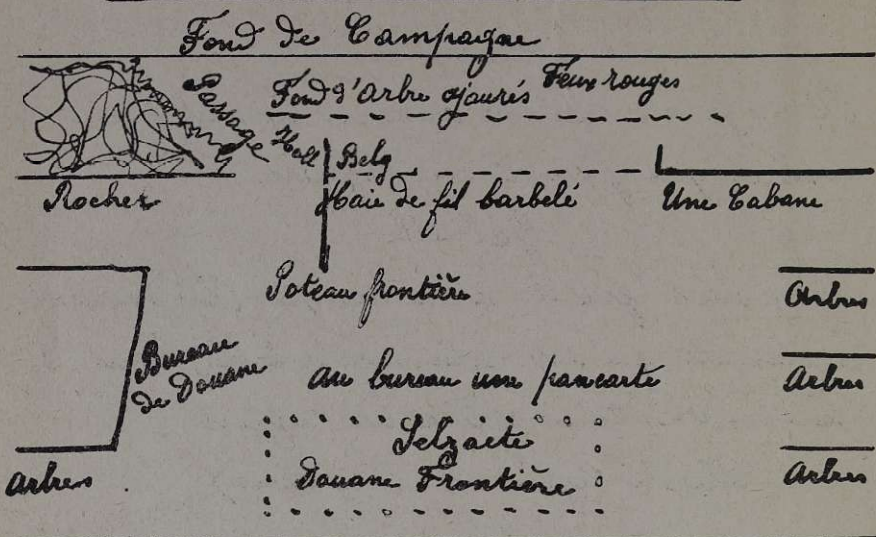 Fond de Campagne
Passage
Fond d'arbre ajourés
Feux rouges
Holl
Belg
Rocher
Haie de fil barbelé
Une Cabane
Poteau frontière
Arbres
Bureau
de Douane
au bureau une pancarte
Arbres
Selzaete
Douane Frontière
Arbres
Arbres